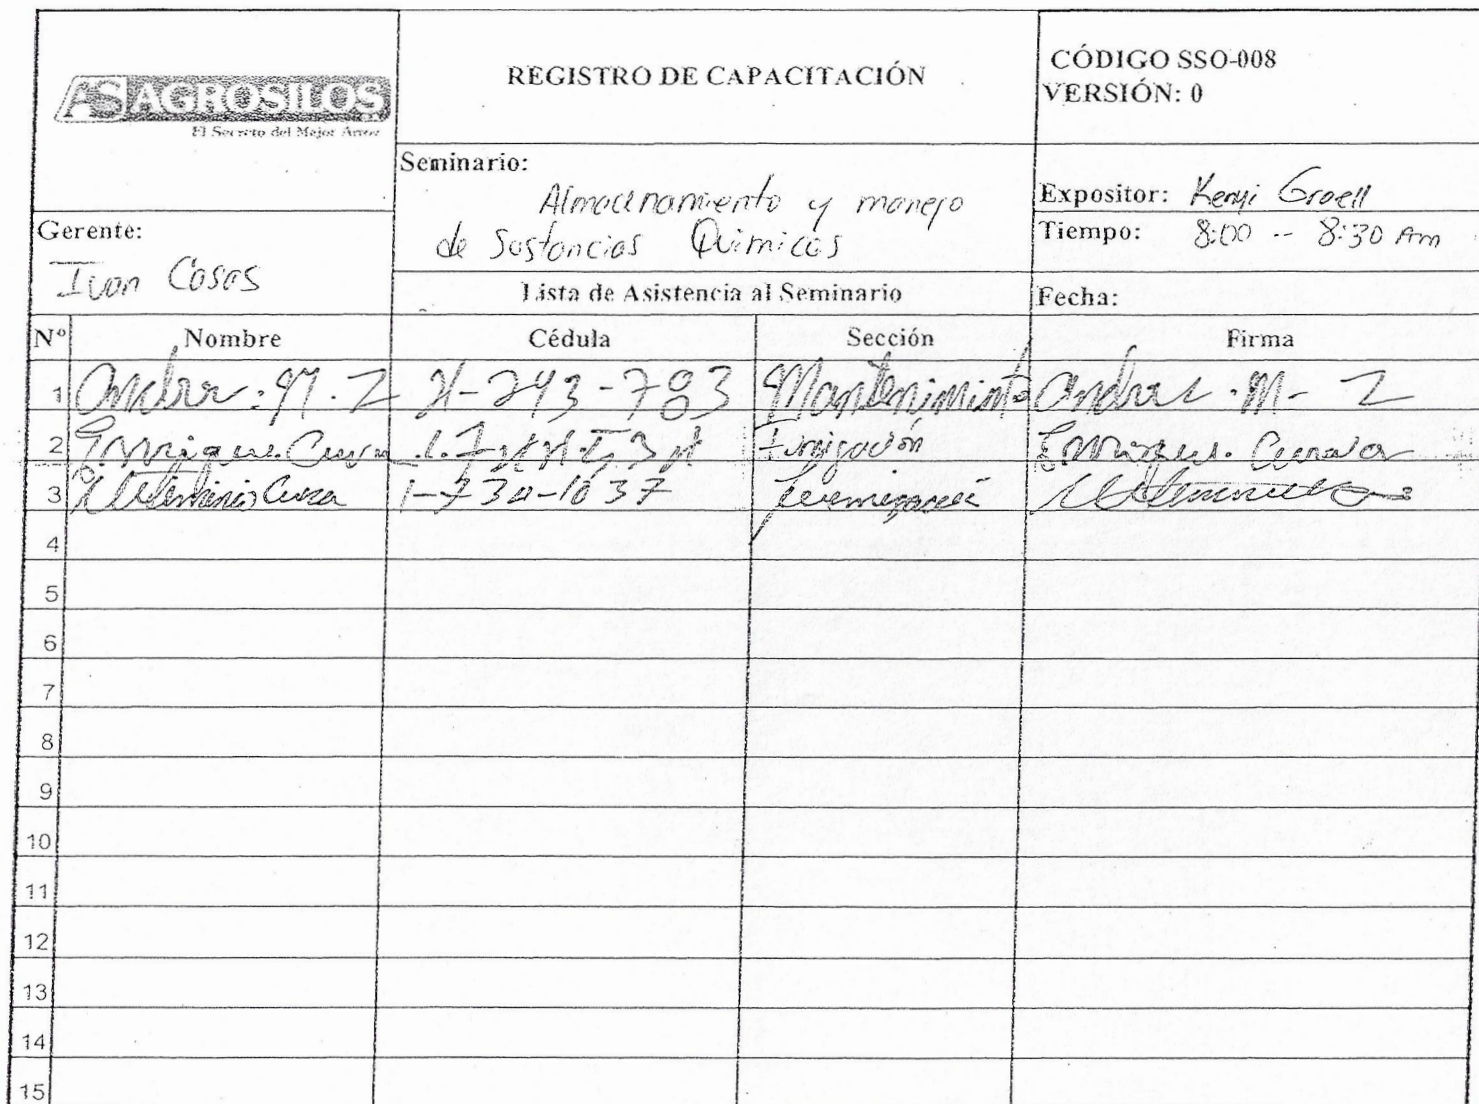 AS AGROSILOS
El Secreto del Mejor Arroz
REGISTRO DE CAPACITACIÓN
CÓDIGO SSO-008
VERSIÓN: 0
Seminario:
Almacenamiento y manejo
de Sustancias Químicas
Expositor: Kenyi Groell
Tiempo: 8:00 -- 8:30 Am
Gerente:
Ivan Casas
Lista de Asistencia al Seminario
Fecha:
Nº Nombre Cédula Sección Firma
1 Andres . M . Z 783 Mantenimiento Andres . M - Z
2 Enrique Fumigación Enrique
3 1-730-1037
4
5
6
7
8
9
10
11
12
13
14
15